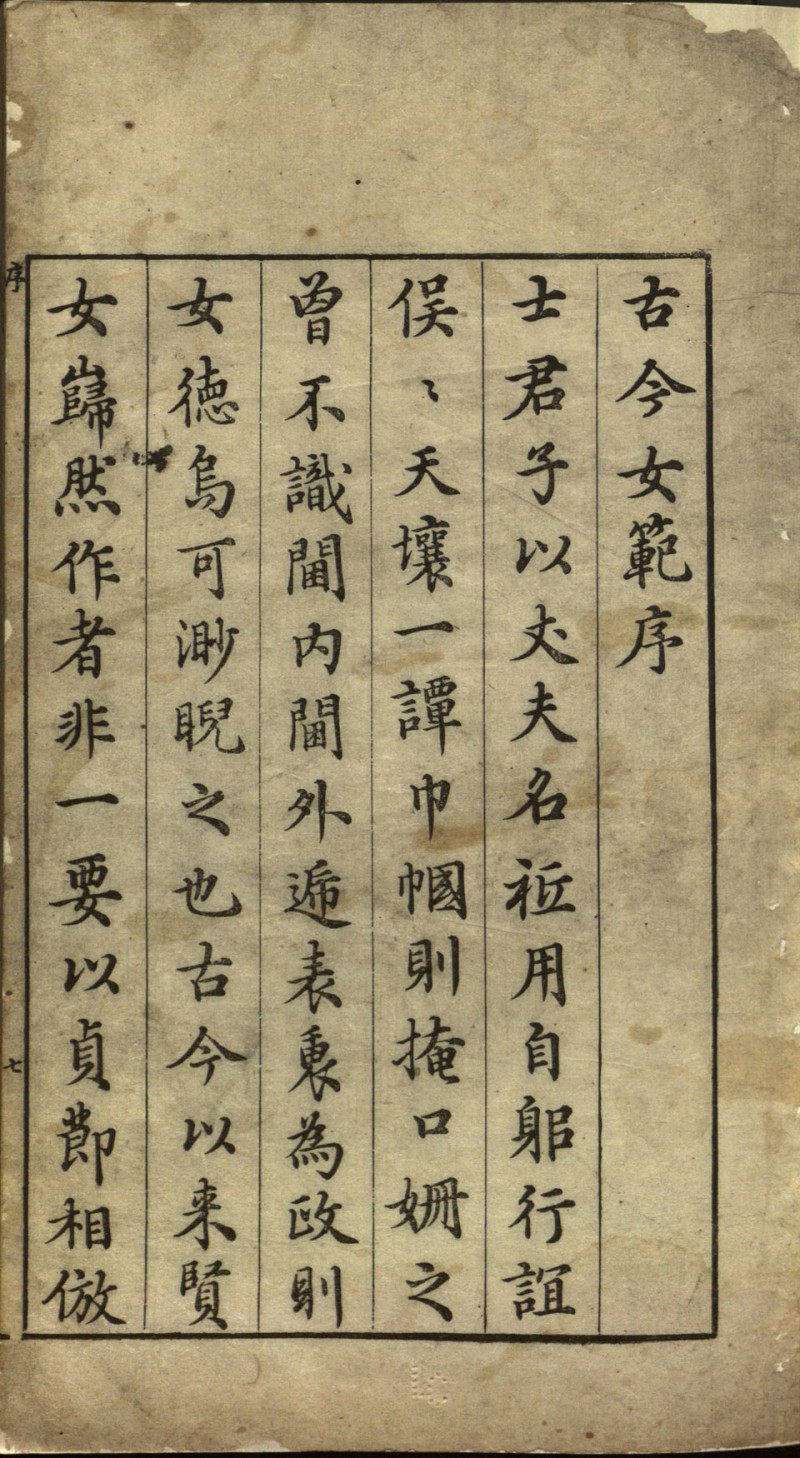 古今女範序
士君子以丈夫名袛用自躳行誼
俣〻天壤一譚巾幗則掩口姍之
曾不識閫内閫外遞表裏為政則
女德烏可渺睨之也古今以来賢
女巋然作者非一要以貞節相倣
序
七